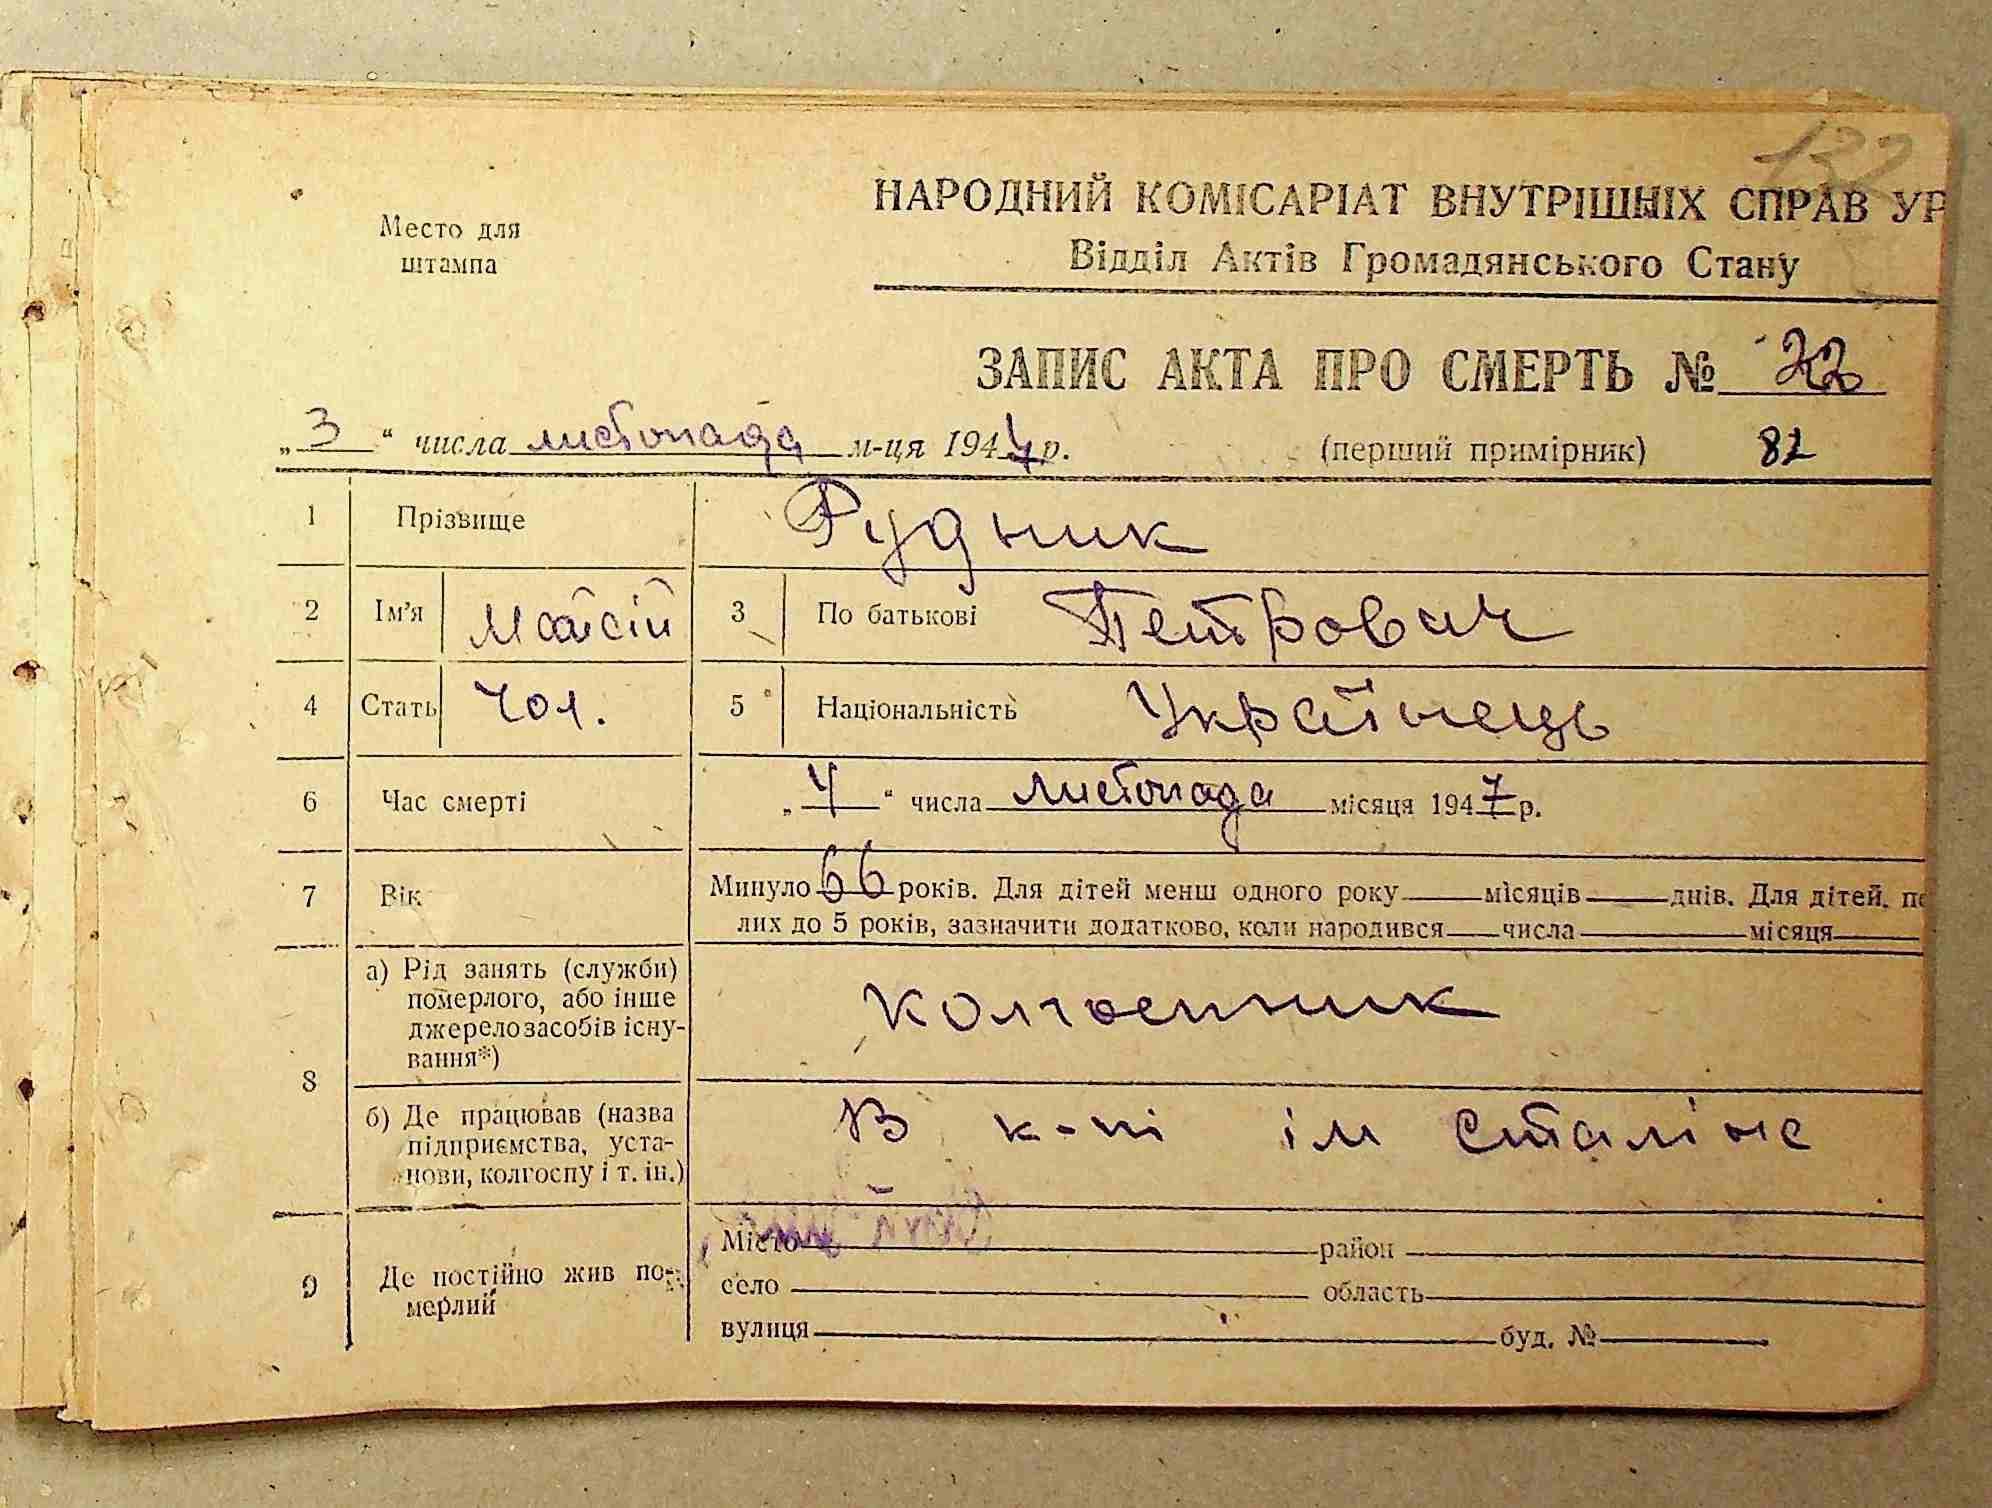 132
Место для
штампа
НАРОДНИЙ КОМІСАРІАТ ВНУТРІШНІХ СПРАВ УР
Відділ Актів Громадянського Стану
ЗАПИС АКТА ПРО СМЕРТЬ № 22
„ 3 “ числа листопада м-ця 1947 р. (перший примірник) 82
1 Прізвище Рудник
2 Ім'я 3 По батькові Петрович
4 Стать чол. 5 Національність Українець
6 Час смерті „ 4 “ числа листопада місяця 1947 р.
7 Вік Минуло 66 років. Для дітей менш одного року місяців днів. Для дітей, по
лих до 5 років, зазначити додатково, коли народився числа місяця
8 а) Рід занять (служби)
померлого, або інше
джерело засобів існу-
вання*)
колгоспник
б) Де працював (назва
підприємства, уста-
нови, колгоспу і т. ін.)
В к-пі ім Сталіна
9 Де постійно жив по-
мерлий
Місто район
село область
вулиця буд. №